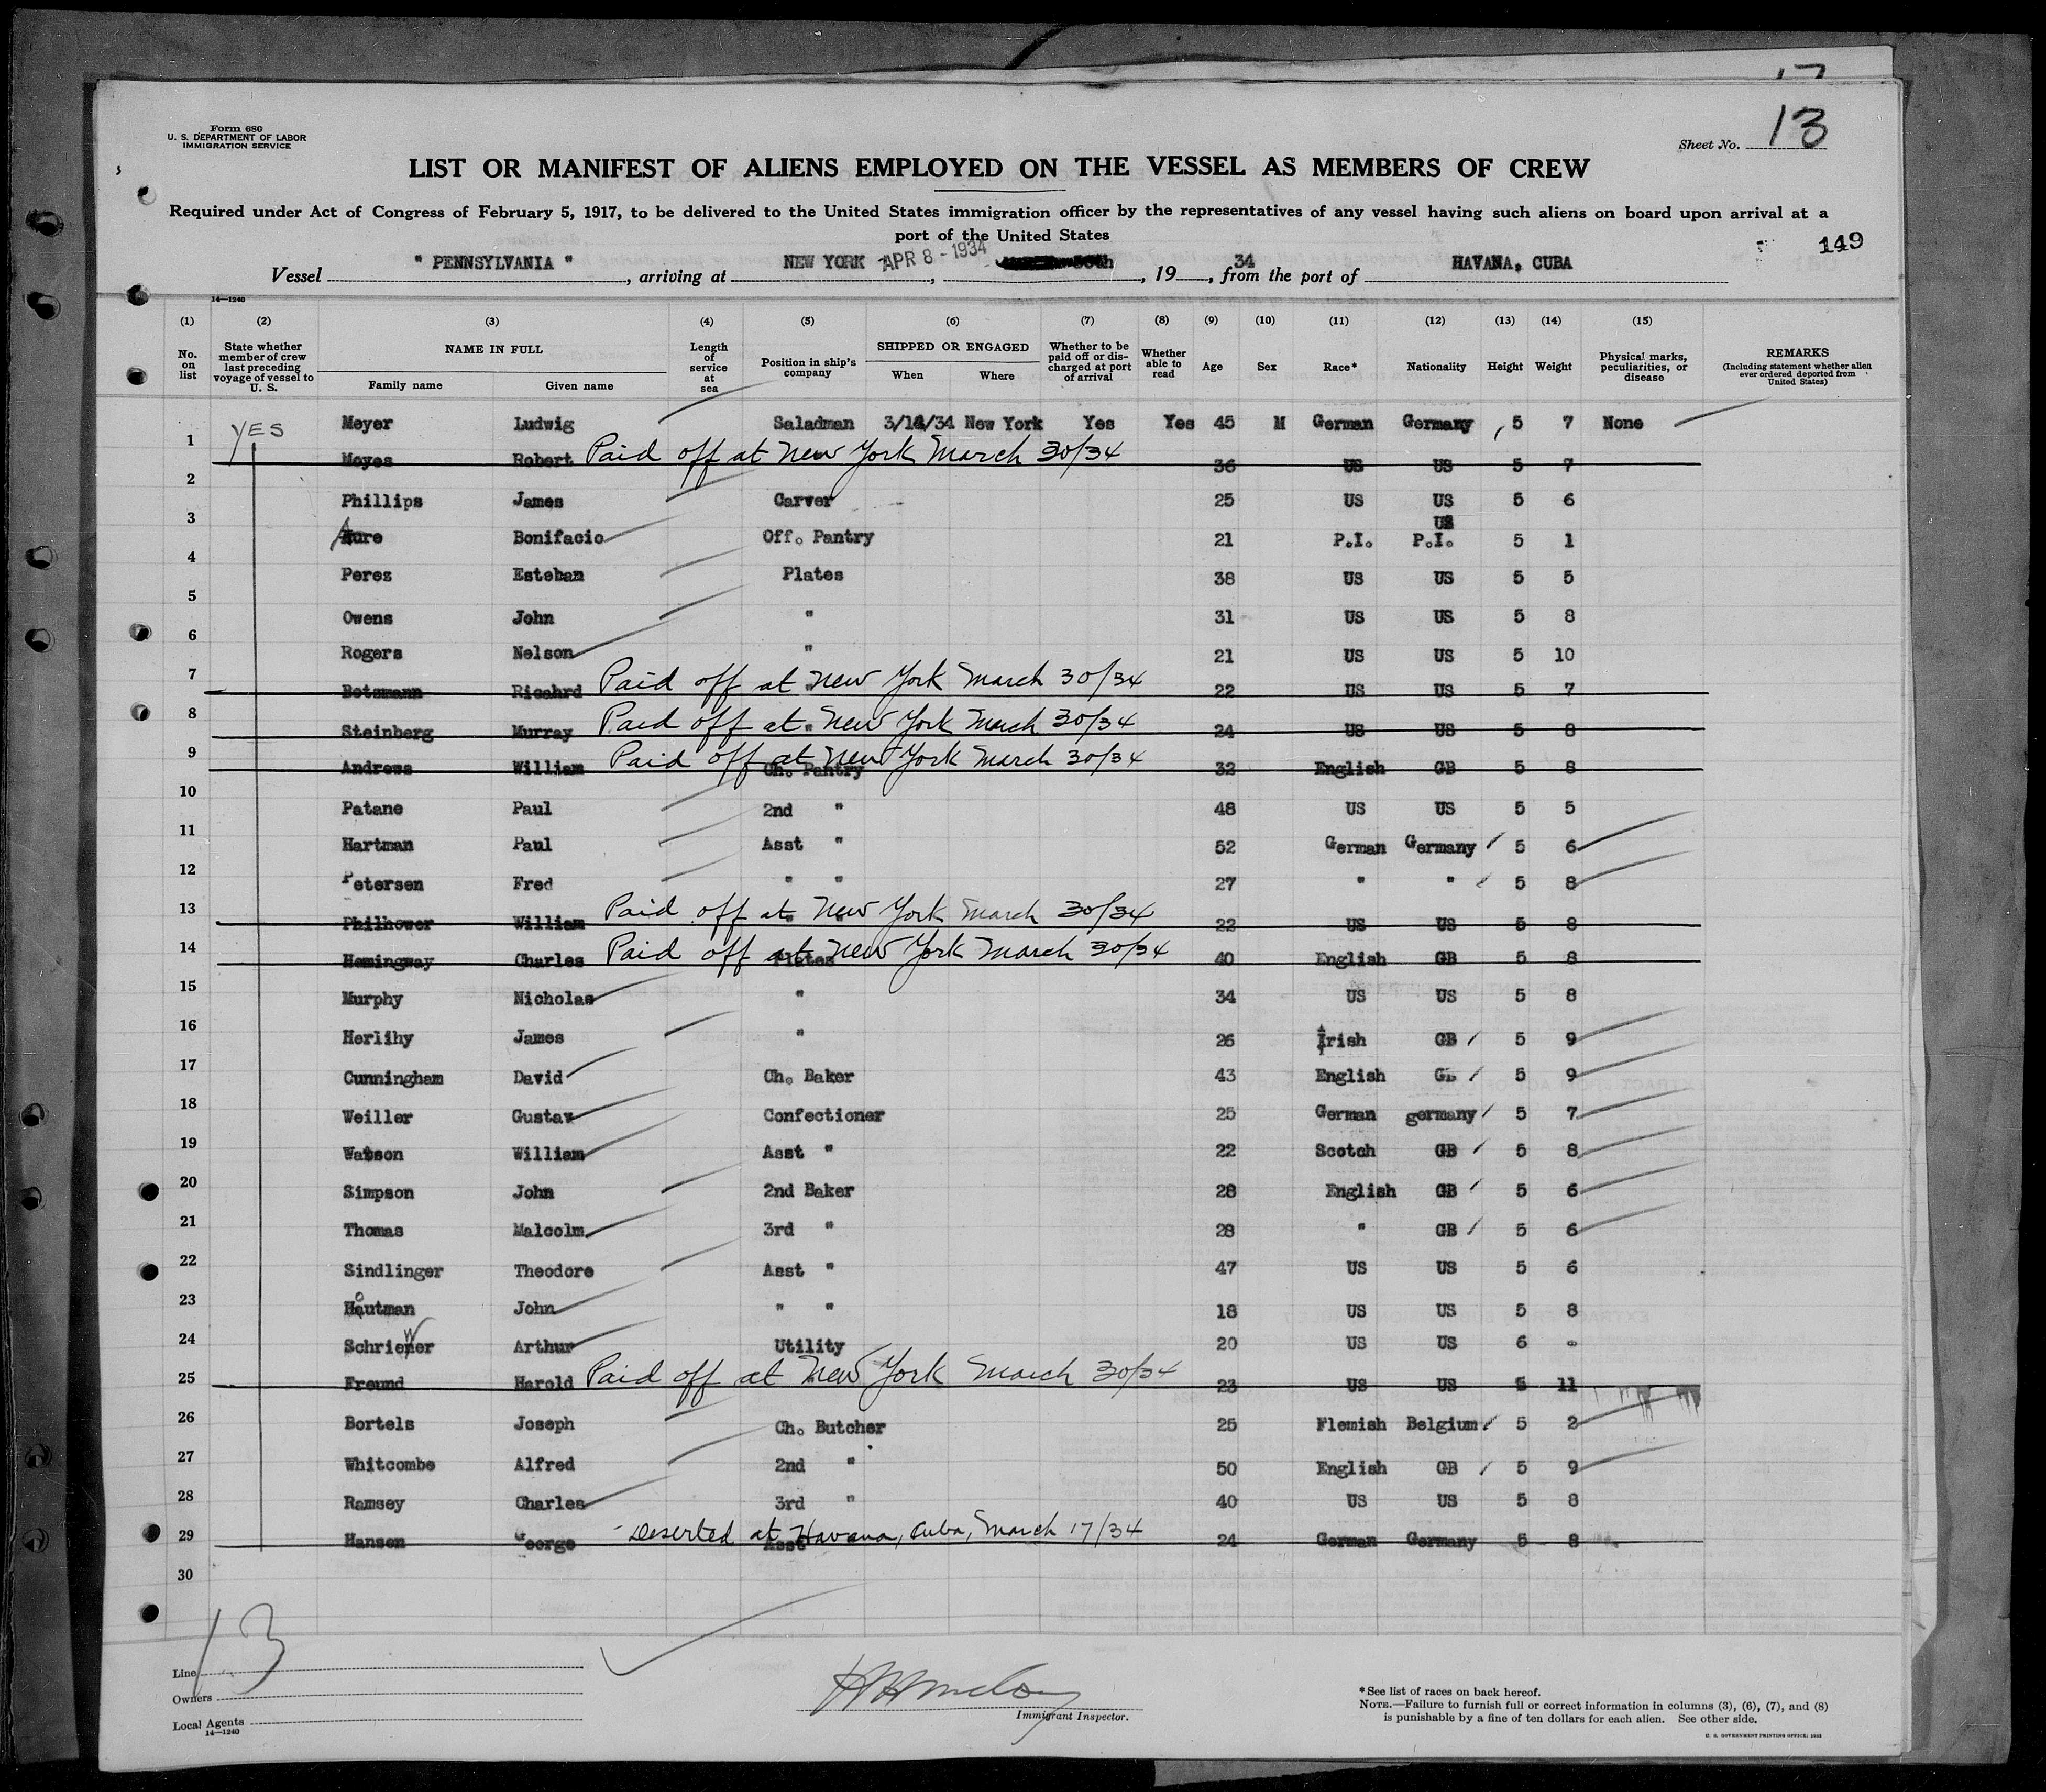 17
13
Form 680
U. S. DEPARTMENT OF LABOR
IMMIGRATION SERVICE
Sheet No.
LIST OR MANIFEST OF ALIENS EMPLOYED ON THE VESSEL AS MEMBERS OF CREW
Required under Act of Congress of February 5, 1917, to be delivered to the United States immigration officer by the representatives of any vessel having such aliens on board upon arrival at a
port of the United States
149
Vessel " PENNSYLVANIA ", arriving at NEW YORK APR 8 - 1934, 30th, 19 34, from the port of HAVANA, CUBA
14—1240
(1) (2) (3) (4) (5) (6) (7) (8) (9) (10) (11) (12) (13) (14) (15)
No. on list State whether member of crew last preceding voyage of vessel to U. S. NAME IN FULL Family name Given name Length of service at sea Position in ship's company SHIPPED OR ENGAGED When Where Whether to be paid off or discharged at port of arrival Whether able to read Age Sex Race* Nationality Height Weight Physical marks, peculiarities, or disease REMARKS (Including statement whether alien ever ordered deported from United States)
1 YES Meyer Ludwig Saladman 3/14/34 New York Yes Yes 45 M German Germany 5 7 None
2 Moyes Robert Paid off at New York March 30/34 36 US US 5 7
3 Phillips James Carver 25 US US 5 6
4 Aure Bonifacio Off. Pantry 21 P.I. US P.I. 5 1
5 Perez Esteban Plates 38 US US 5 5
6 Owens John " 31 US US 5 8
7 Rogers Nelson " 21 US US 5 10
8 Botsmann Ricahrd Paid off at New York March 30/34 22 US US 5 7
9 Steinberg Murray Paid off at New York March 30/34 24 US US 5 8
10 Andrews William Paid off at New York March 30/34 Ch. Pantry 32 English GB 5 8
11 Patane Paul 2nd " 48 US US 5 5
12 Hartman Paul Asst " 52 German Germany 5 6
13 Petersen Fred " " 27 " " 5 8
14 Philhower William Paid off at New York March 30/34 22 US US 5 8
15 Hemingway Charles Paid off at New York March 30/34 Plates 40 English GB 5 8
16 Murphy Nicholas " 34 US US 5 8
17 Herlihy James " 26 Irish GB 5 9
18 Cunningham David Ch. Baker 43 English GB 5 9
19 Weiller Gustav Confectioner 25 German germany 5 7
20 Watson William Asst " 22 Scotch GB 5 8
21 Simpson John 2nd Baker 28 English GB 5 6
22 Thomas Malcolm 3rd " 28 " GB 5 6
23 Sindlinger Theodore Asst " 47 US US 5 6
24 Houtman John " " 18 US US 5 8
25 Schriewer Arthur Utility 20 US US 6 -
26 Freund Harold Paid off at New York March 30/34 23 US US 5 11
27 Bortels Joseph Ch. Butcher 25 Flemish Belgium 5 2
28 Whitcombe Alfred 2nd " 50 English GB 5 9
29 Ramsey Charles 3rd " 40 US US 5 8
30 Hansen George Deserted at Havana, Cuba, March 17/34 Asst 24 German Germany 5 8
13
Line
Owners
Local Agents
14—1240
Immigrant Inspector.
*See list of races on back hereof.
NOTE.—Failure to furnish full or correct information in columns (3), (6), (7), and (8)
is punishable by a fine of ten dollars for each alien. See other side.
U. S. GOVERNMENT PRINTING OFFICE: 1932